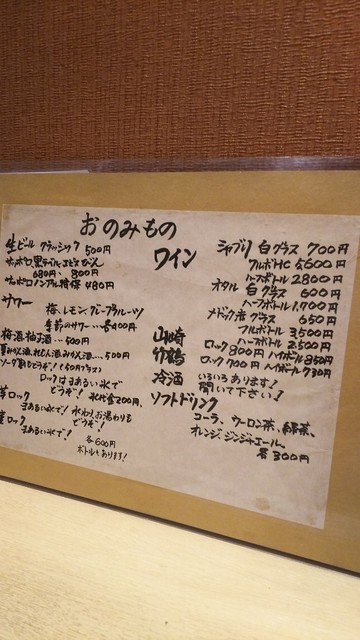 おのみもの
生ビール クラッシック 500円
サッポロ黒ラベル、ヱビスびん
680円、 800円
サッポロノンアル 480
サワー 梅、レモン、グレープフルーツ
季節のサワー…各400円
梅酒、柚子酒…500円
みかん酒…500円
ソーダ割もどうぞ！(+50円プラス)
ロックはまあるい氷で
どうぞ！ 氷代金200円、
ロック
まあるい氷で！水わり、お湯わりも
どうぞ！
ロック
まあるい氷で！
各600円
ボトルもあります！
ワイン
シャブリ 白グラス 700円
フルボトル 5,600円
ハーフボトル 2800円
オタル 白グラス 600円
ハーフボトル 1,700円
メドック 赤グラス 650円
フルボトル 3,500円
ハーフボトル 2,500円
山崎 ロック 800円 ハイボール 850円
竹鶴 ロック 700円 ハイボール 730円
冷酒 いろいろあります！
聞いて下さい！
ソフトドリンク
コーラ、ウーロン茶、緑茶、
オレンジ、ジンジャエール、
各300円